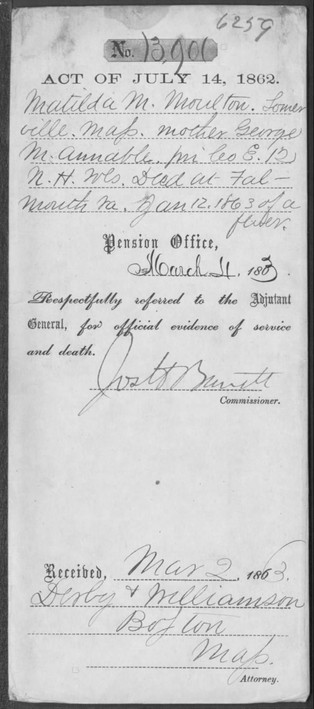 6259
No. 13,901
ACT OF JULY 14, 1862.
Matilda M. Moulton. Somer
ville. Mass. mother George
M. Annable. pri Co E. 12
N. H. Vols. Died at Fal-
mouth Va. Jany 12. 1863 of a
fever.
Pension Office,
March 4, 1863.
Respectfully referred to the Adjutant
General, for official evidence of service
and death.
Jos H Barrett
Commissioner.
Received, Mar 2, 1863.
Derby & Williamson
Boston
Mass.
Attorney.